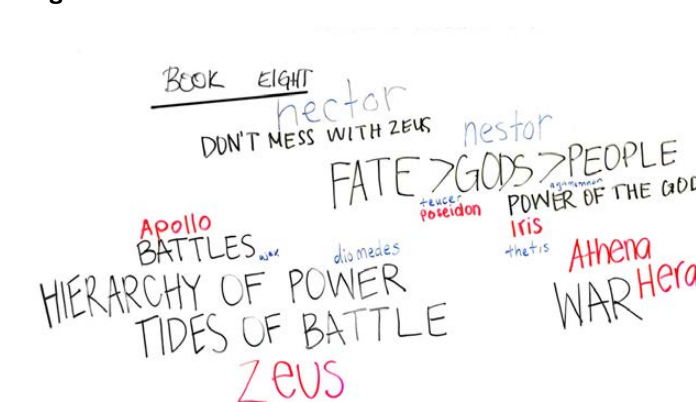 BOOK EIGHT
hector
DON'T MESS WITH ZEUS
nestor
FATE > GODS > PEOPLE
agamemnon
teucer
poseidon
POWER OF THE GOD
Iris
thetis
Apollo
BATTLES
war
diomedes
Athena
Hera
WAR
HIERARCHY OF POWER
TIDES OF BATTLE
Zeus